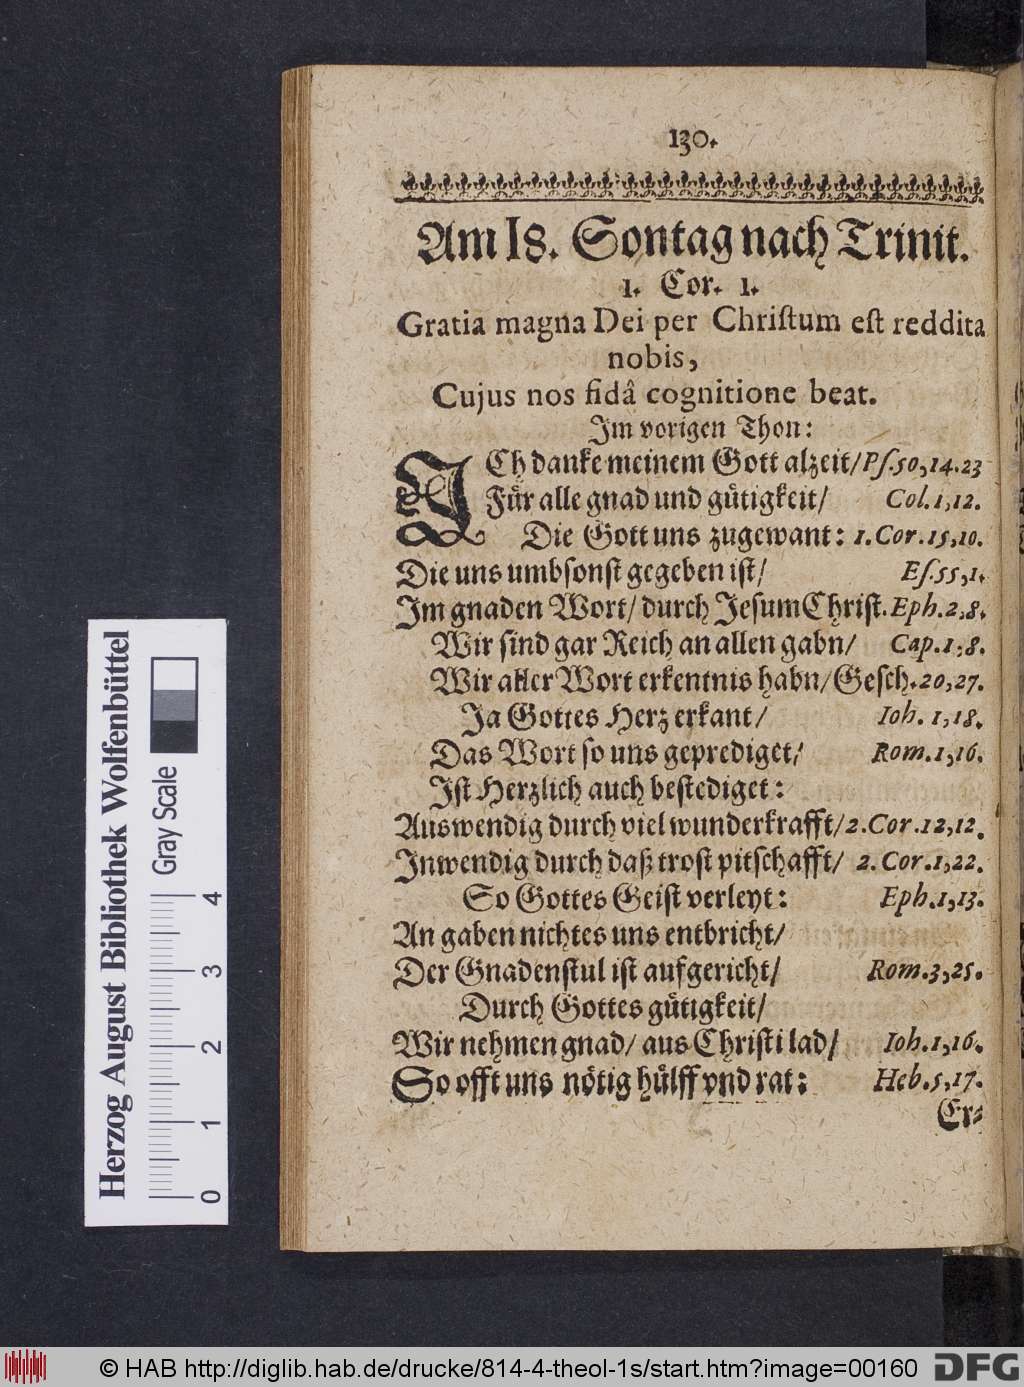 130.
Am 18. Sontag nach Trinit.
1. Cor. 1.
Gratia magna Dei per Chriſtum eſt reddita
nobis,
Cujus nos fidâ cognitione beat.
Im vorigen Thon:
ICh danke meinem Gott alzeit/ Pſ.50,14.23
Für alle gnad und gütigkeit/ Col.1,12.
Die Gott uns zugewant: 1.Cor.15,10.
Die uns umbſonſt gegeben iſt/ Eſ.55,1.
Im gnaden Wort/ durch Jeſum Chriſt. Eph.2,8.
Wir ſind gar Reich an allen gabn/ Cap.1,8.
Wir aller Wort erkentnis habn/ Geſch.20,27.
Ja Gottes Herz erkant/ Ioh. 1,18.
Das Wort ſo uns geprediget/ Rom.1,16.
Iſt Herzlich auch beſtediget:
Auswendig durch viel wunderkrafft/ 2.Cor.12,12.
Inwendig durch daß troſt pitſchafft/ 2.Cor.1,22.
So Gottes Geiſt verleyt: Eph.1,13.
An gaben nichtes uns entbricht/
Der Gnadenſtul iſt aufgericht/ Rom.3,25.
Durch Gottes gütigkeit/
Wir nehmen gnad/ aus Chriſti lad/ Ioh.1,16.
So offt uns nötig hülff vnd rat: Heb.5,17.
Er⸗
Herzog August Bibliothek Wolfenbüttel
Gray Scale
0 1 2 3 4
© HAB http://diglib.hab.de/drucke/814-4-theol-1s/start.htm?image=00160
DFG